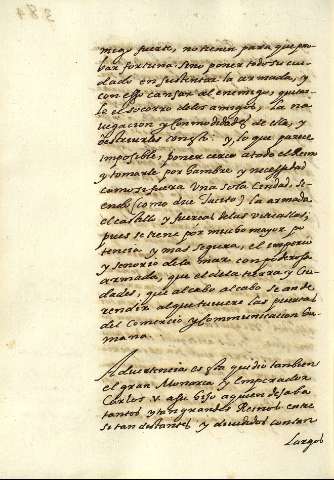 migo fuerte, no tienen para que pro
bar fortuna. sino poner todo su cui
dado en sustentar la armada, y
con esso cansar al enemigo, quitar
le el socorro de los amigos, la na
uegacion y commodidades de ella, y
desta suerte
y, lo que parece
imposible, poner cerco a todo el Reino
y tomarle por hambre y necessidad
como se fuera Una sola Ciudad, si
endo (como dice Tacito) la armada
el castillo y fuerça de las vitoallas,
pues se tiene por mucho mayor po
tencia y mas segura, el imperio
y senorio de la mar con poderosa
armada, que el de la tierra y Ciu
dades, que al cabo al cabo se an de
rendir al que tuuiere las puertas
del Comercio y Communicacion hu
mana.
Aduertencia es esta que dio tambien
el gran Monarca y Emperador
Carlos V a su hijo a quien dejaba
tantos y tan grandes Reinos entre
si tan distantes y diuididos con tan
Largos